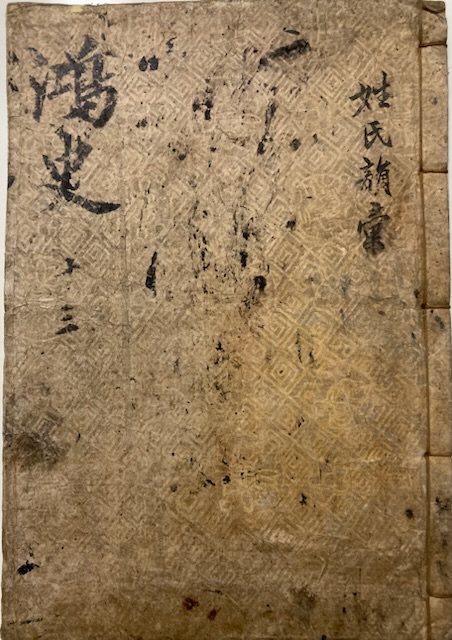 姓氏韻彙
鴻史
十三